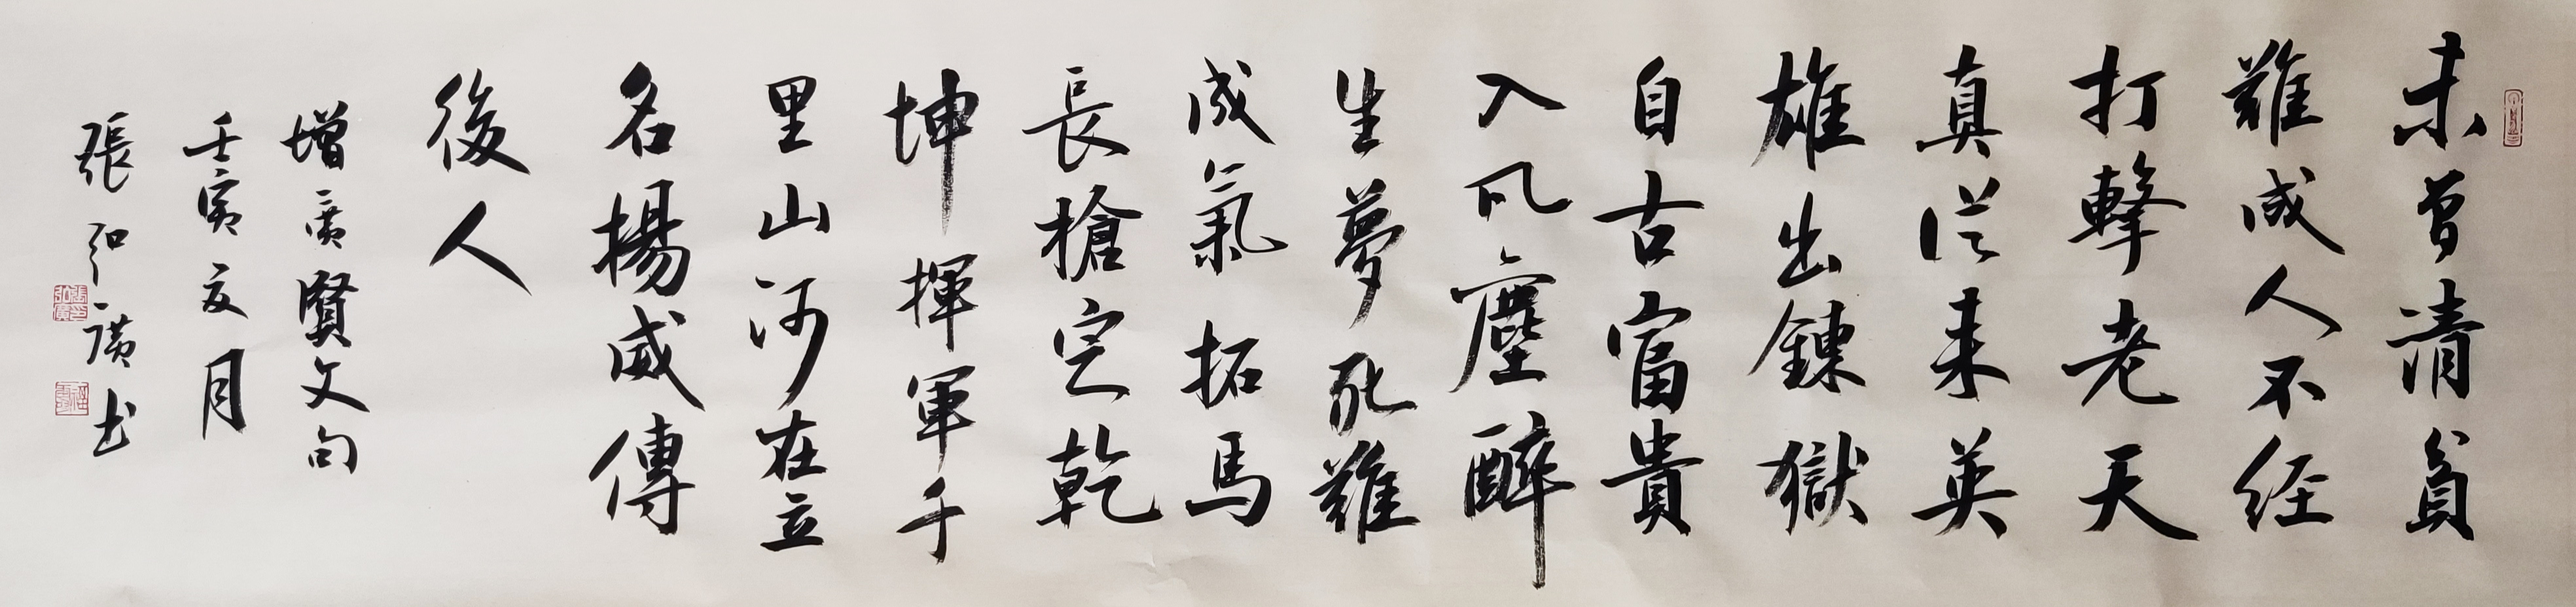 未曾清貧
難成人不经
打擊老天
真從来英
雄出鍊獄
自古富貴
入風塵醉
生夢死難
成氣拓馬
長槍定乾
坤揮軍千
里山河在立
名揚威傳
後人
增廣賢文句
壬寅夏月
張弘廣书
張弘廣印